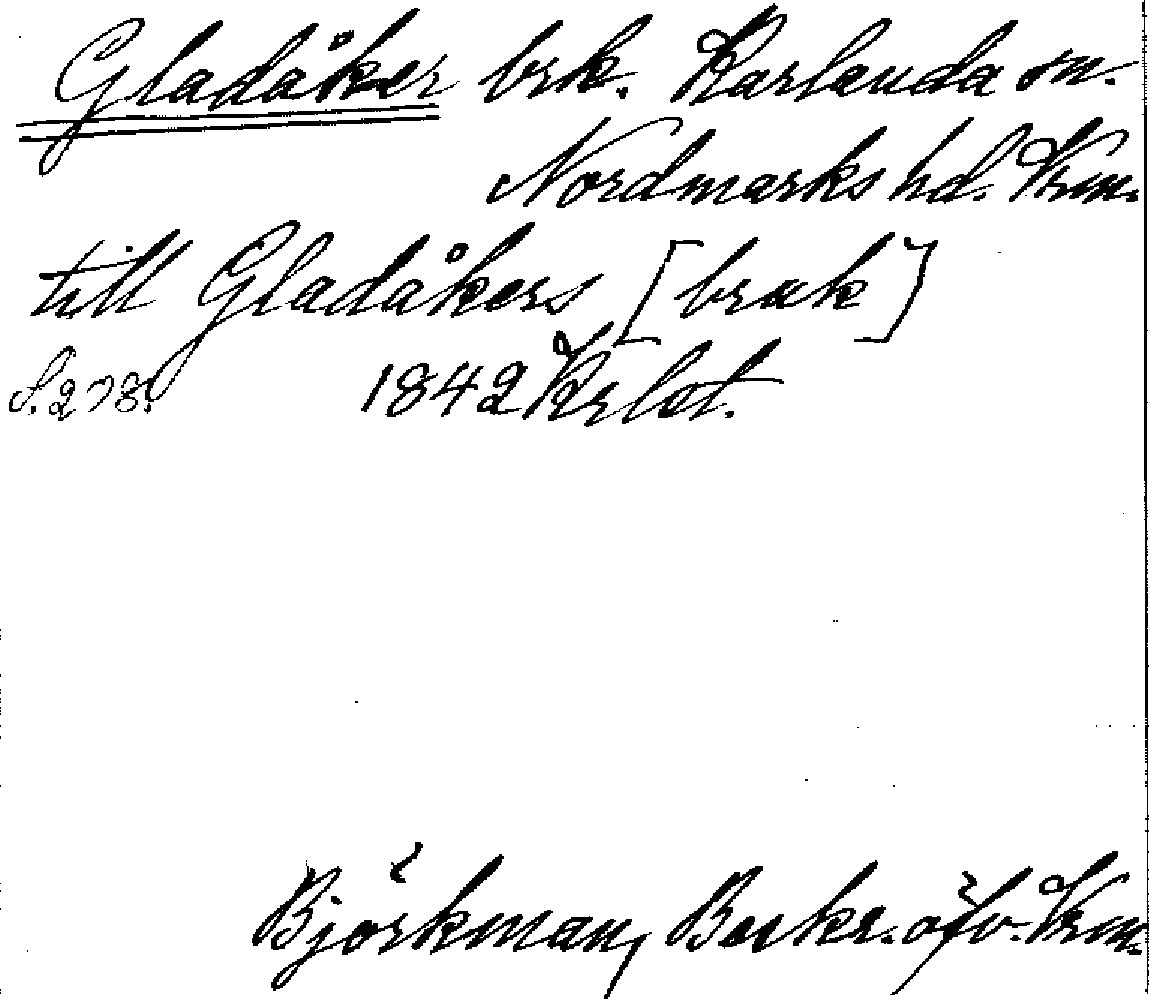 Gladåker brk. Karlanda sn.
Nordmarks hd. Vrm.
till Gladåkers [bruk]
S. 278. 1842 Krlot.
Björkman, Beskr. öfv. Vrm.